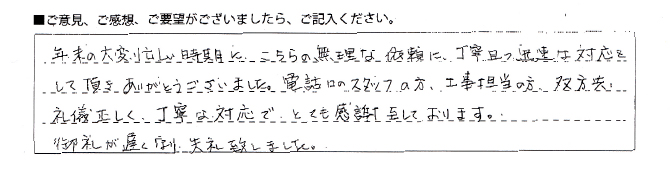 ■ご意見、ご感想、ご要望がございましたら、ご記入ください。
年末の大変忙しい時期に、こちらの無理な依頼に、丁寧且つ迅速な対応を
して頂きありがとうございました。電話口のスタッフの方、工事担当の方、双方共
礼儀正しく、丁寧な対応で、とても感謝致しております。
御礼が遅くなり、失礼致しました。